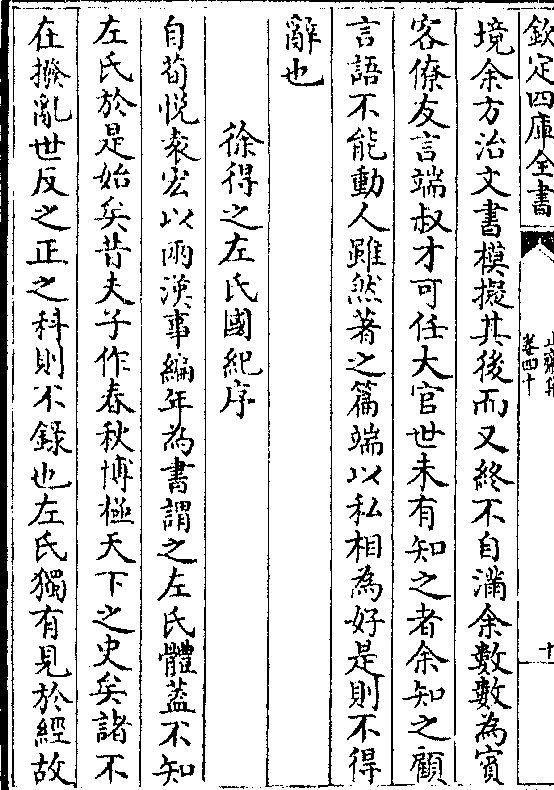 欽定四庫全書
止齋集
卷四十
十
境余方治文書模擬其後而又終不自滿余數數為賔
客僚友言端叔才可任大官世未有知之者余知之顧
言語不能動人雖然著之篇端以私相為好是則不得
辭也
徐得之左氏國紀序
自荀悦袁宏以兩漢事編年為書謂之左氏體葢不知
左氏於是始矣昔夫子作春秋博極天下之史矣諸不
在撥亂世反之正之科則不錄也左氏獨有見於經故